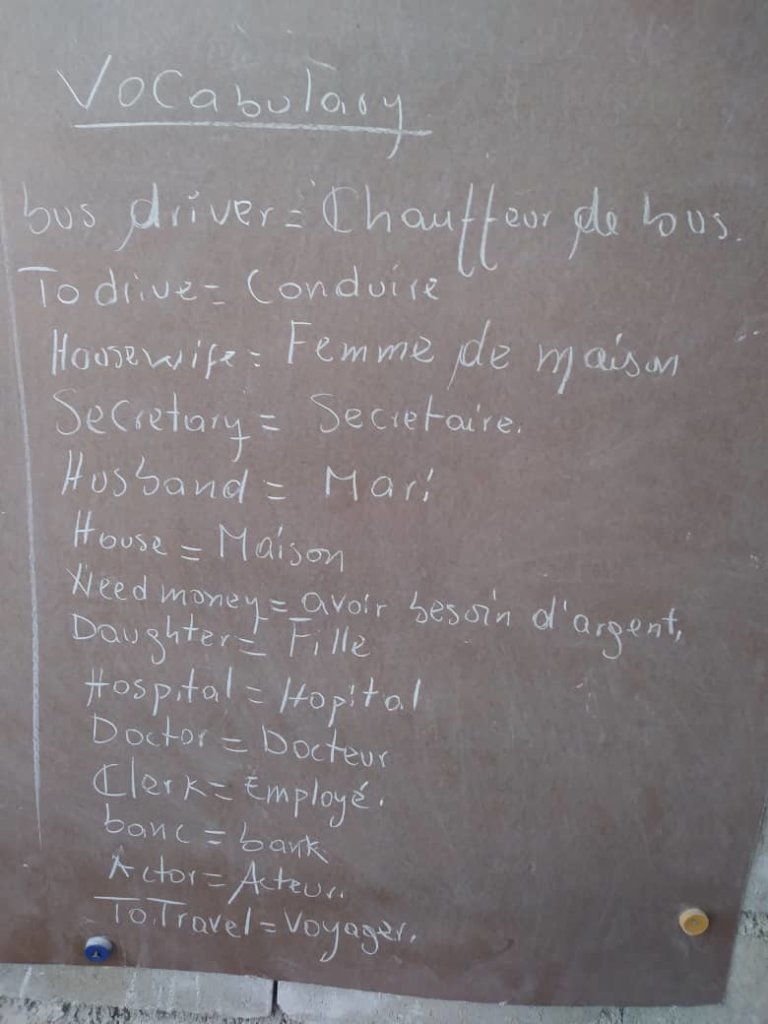 Vocabulary
bus driver = Chauffeur de bus.
To drive = Conduire
Housewife = Femme de maison
Secretary = Secretaire.
Husband = Mari
House = Maison
Need money = avoir besoin d'argent,
Daughter = Fille
Hospital = Hopital
Doctor = Docteur
Clerk = Employé.
banc = bank
Actor = Acteur.
To Travel = Voyager.